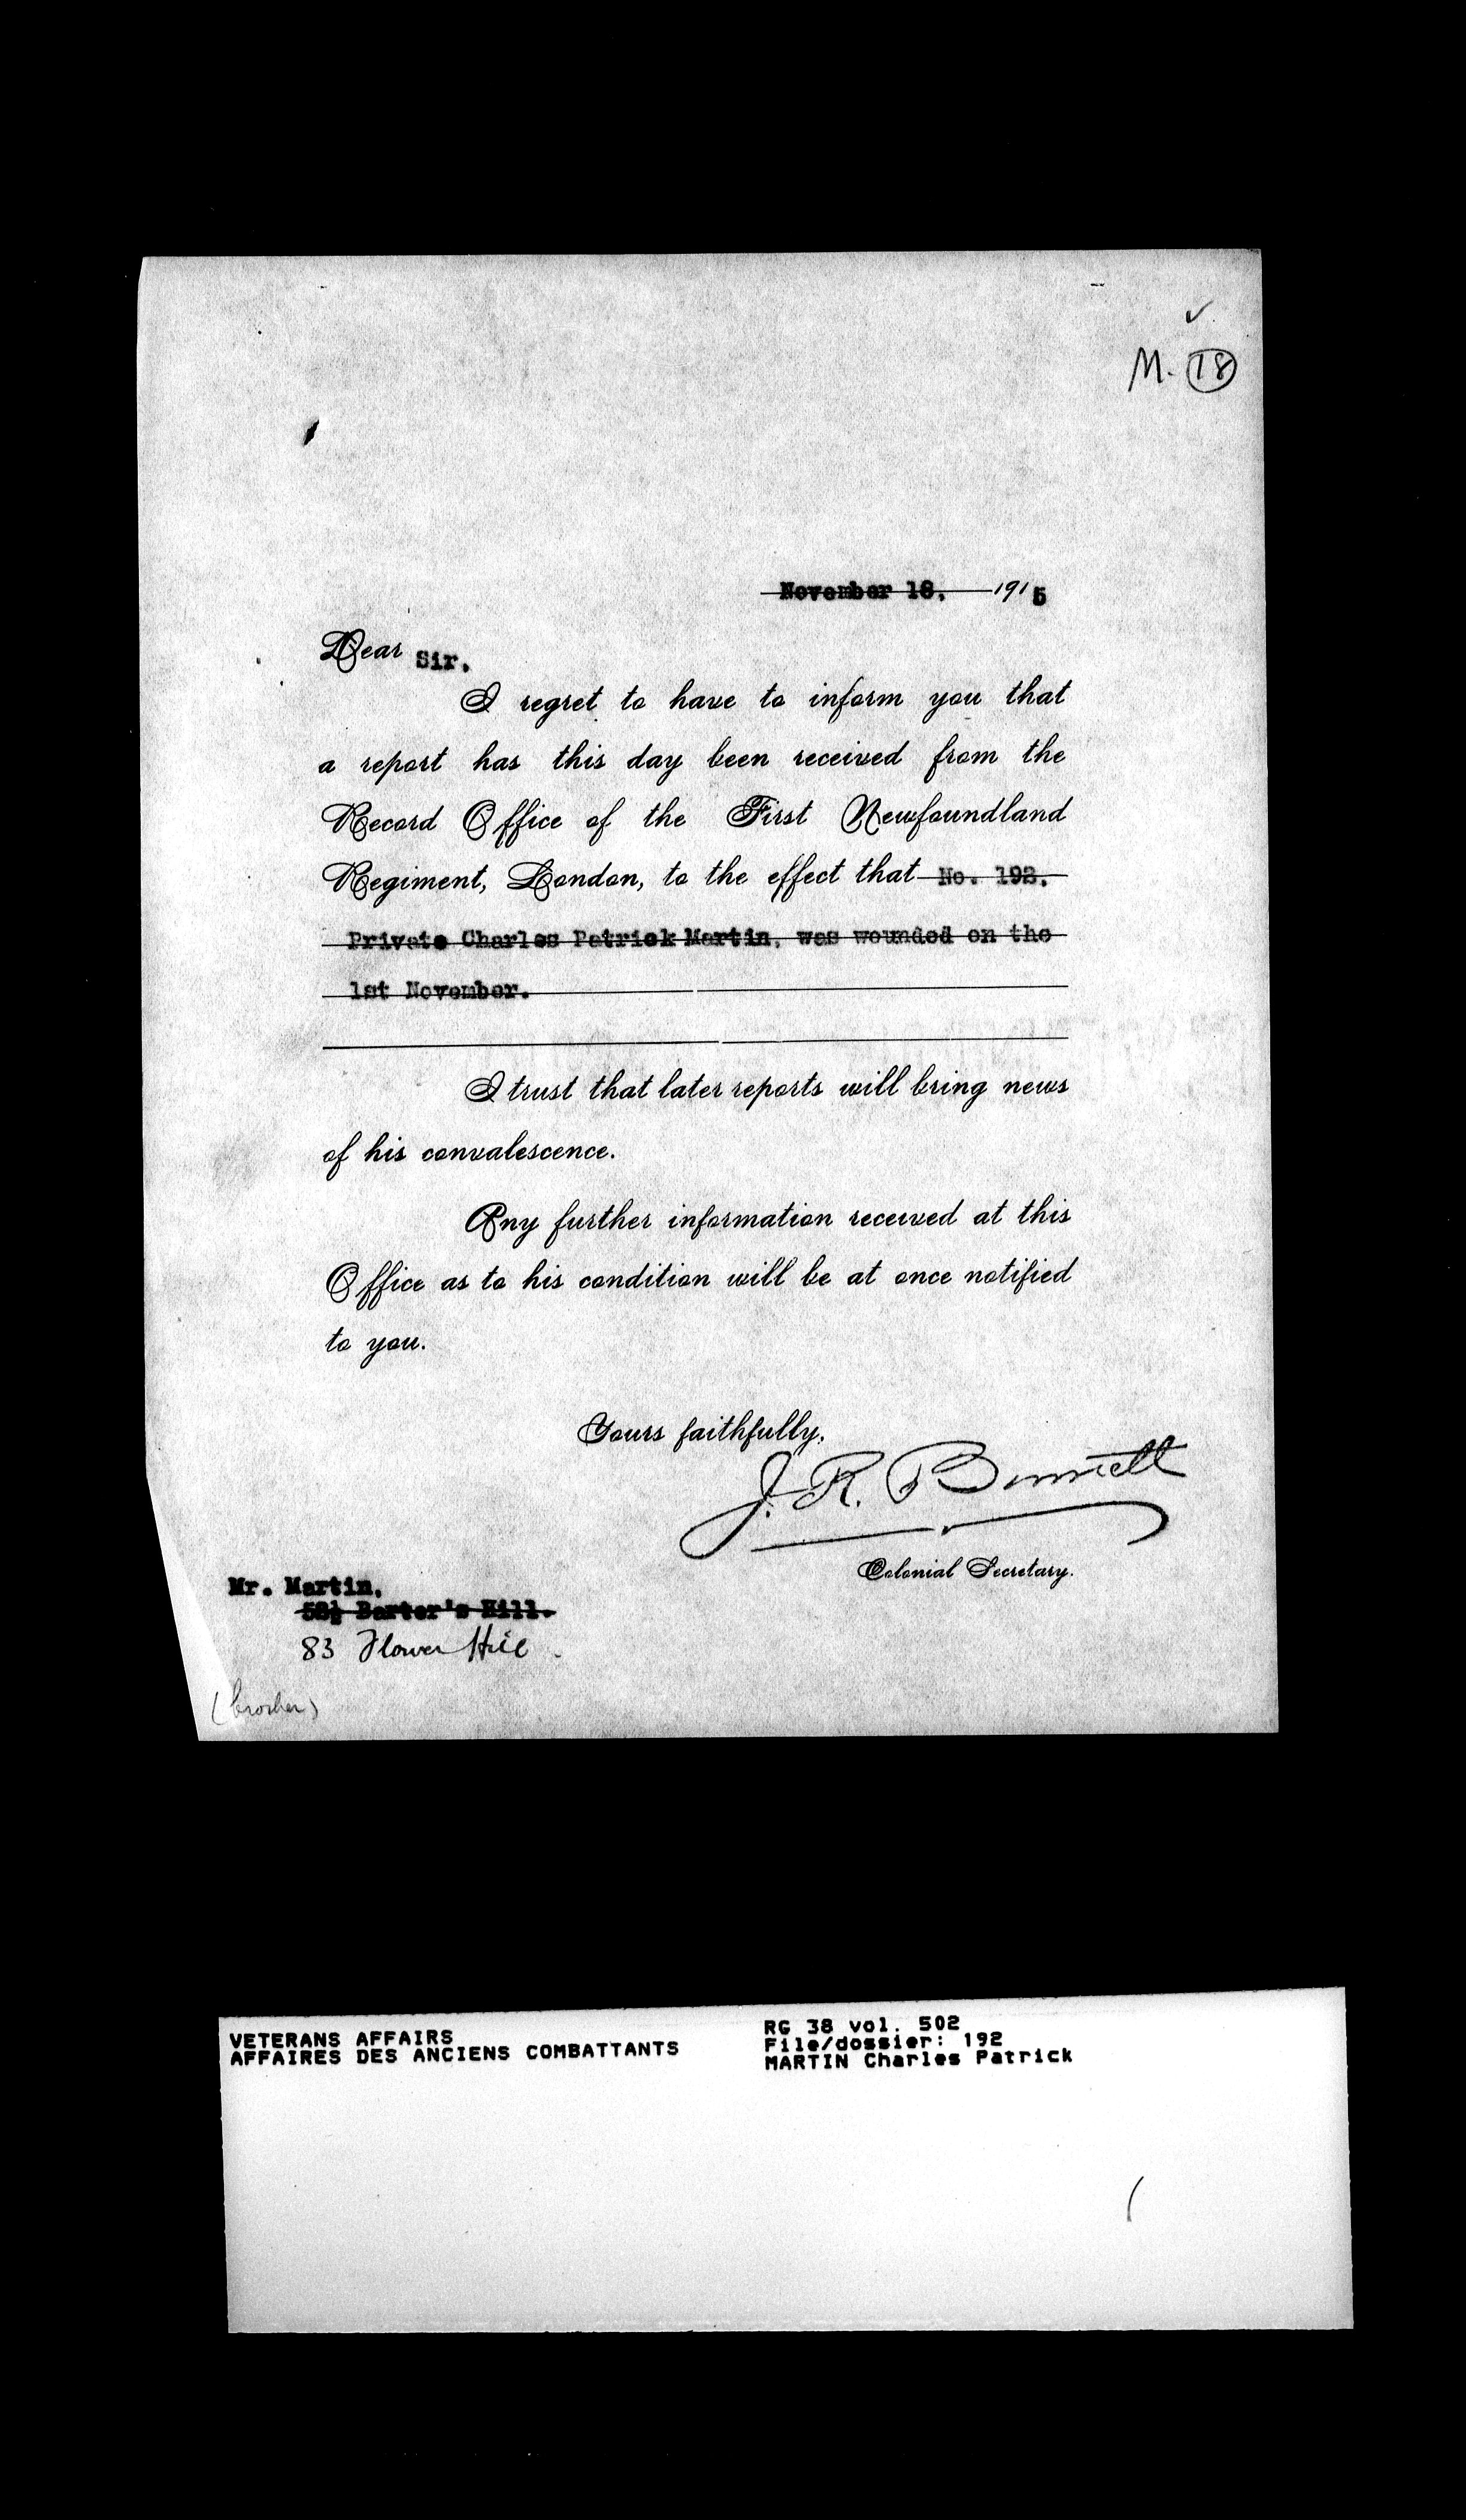 ✓
M. 18
November 18, 1915
Dear Sir,
I regret to have to inform you that
a report has this day been received from the
Record Office of the First Newfoundland
Regiment, London, to the effect that No. 192,
Private Charles Patrick Martin, was wounded on the
1st November.
I trust that later reports will bring news
of his convalescence.
Any further information received at this
Office as to his condition will be at once notified
to you.
Yours faithfully,
J. R. Bennett
Colonial Secretary.
Mr. Martin,
58½ Barter's Hill.
83 Flower Hill.
(brother)
VETERANS AFFAIRS
AFFAIRES DES ANCIENS COMBATTANTS
RG 38 vol. 502
File/dossier: 192
MARTIN Charles Patrick